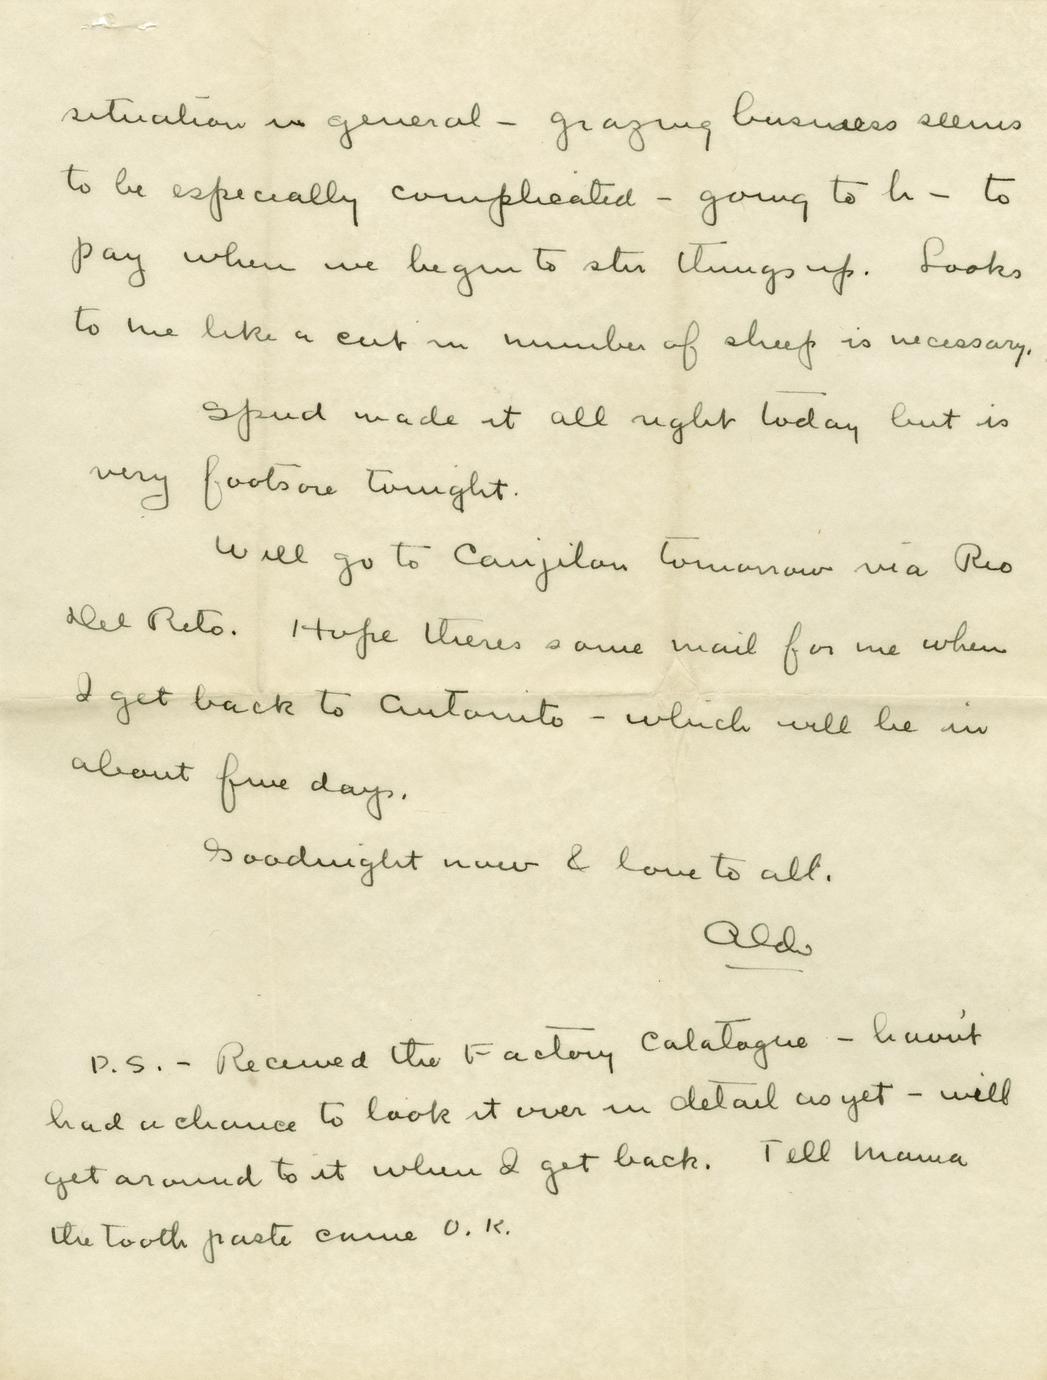 situation in general – grazing business seems
to be especially complicated – going to h – to
pay when we begin to stir things up. Looks
to me like a cut in number of sheep is necessary.
Spud made it all right today but is
very footsore tonight.
Will go to Canjilon tomorrow via Rio
Del Rito. Hope theres some mail for me when
I get back to Antonito – which will be in
about five days.
Goodnight now & love to all.
Aldo
P.S. – Received the Factory Catalogue – havn't
had a chance to look it over in detail as yet – will
get around to it when I get back. Tell Mama
the tooth paste came O.K.